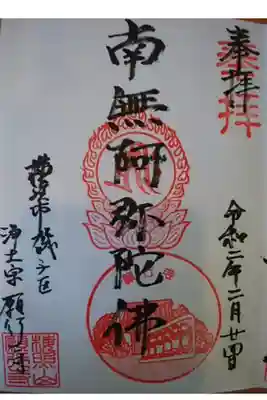 奉拝
奉拝
令和二年二月廿四日
南無阿弥陀佛
横浜市磯子区
浄土宗願行寺